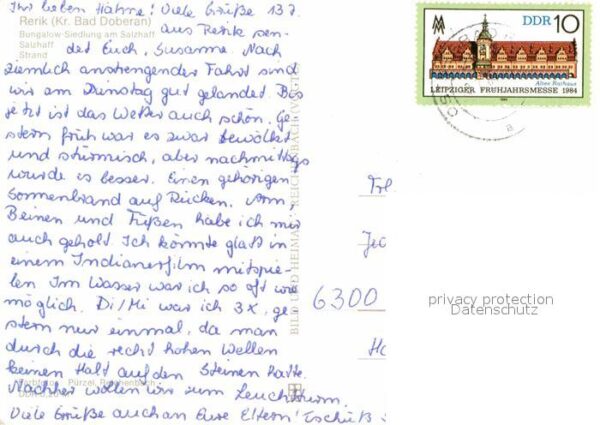 Ihr lieben Hähne! Viele Grüße 13.7.
Rerik (Kr. Bad Doberan)
Bungalow-Siedlung am Salzhaff
Salzhaff
Strand
aus Rerik sen-
det Euch, Susanne. Nach
ziemlich anstrengender Fahrt sind
wir am Dienstag gut gelandet. Bis
jetzt ist das Wetter auch schön. Ge-
stern früh war es zwar bewölkt
und stürmisch, aber nachmittags
wurde es besser. Einen gehörigen
Sonnenbrand auf Rücken, Arm,
Beinen und Füßen habe ich mir
auch geholt. Ich könnte glatt in
einem Indianerfilm mitspie-
len. Im Wasser war ich so oft wie
möglich. Di/Mi war ich 3x, ge-
stern nur einmal, da man
durch die recht hohen Wellen
keinen Halt auf den Steinen hatte.
Nachher wollen wir zum Leuchtturm.
Viele Grüße auch an Eure Eltern! Tschüß
Pürzel, Reichenbach
BILD UND HEIMAT REICHENBACH
DDR 10
Altes Rathaus
LEIPZIGER FRÜHJAHRSMESSE 1984
6300
privacy protection
Datenschutz